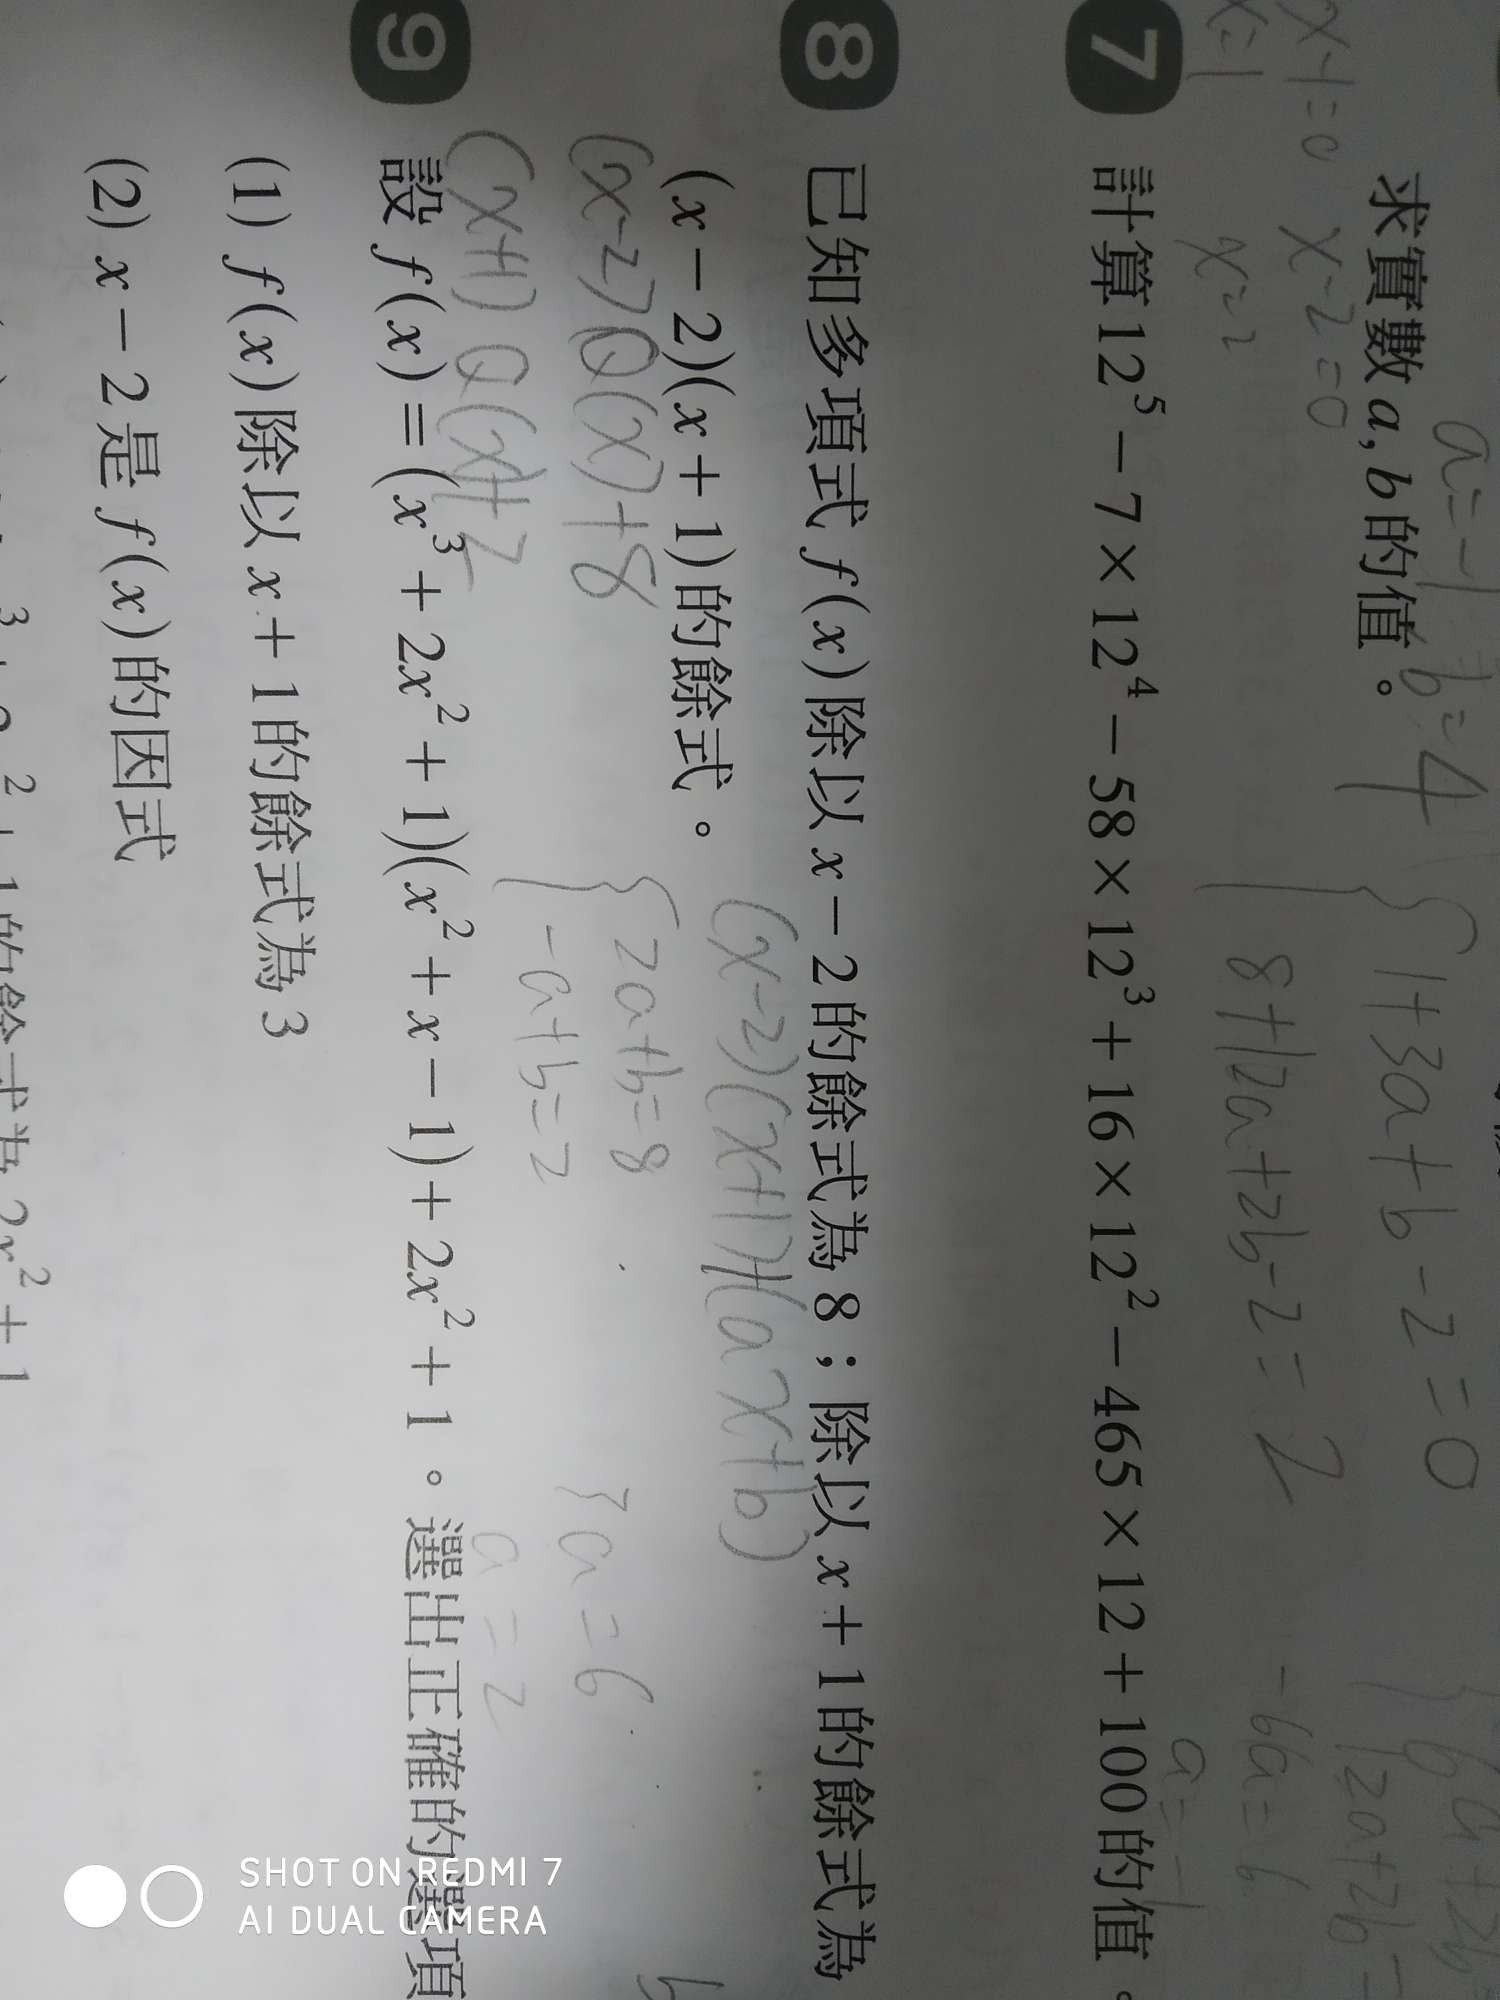 求實數a,b的值。
a=-1 b=4
{1+3a+b-2=0
8+12a+2b-2=2
x-1=0 x-2=0
x=1 x=2
-6a=6
a=-1
7 計算12⁵-7×12⁴-58×12³+16×12²-465×12+100的值。
8 已知多項式f(x)除以x-2的餘式為8;除以x+1的餘式為
(x-2)(x+1)的餘式。
(x-2)(x+1)+(ax+b)
(x-2)Q(x)+8
(x+1)Q(x)+2
{2a+b=8
-a+b=2
3a=6
a=2
9 設f(x)=(x³+2x²+1)(x²+x-1)+2x²+1。選出正確的選項
(1) f(x)除以x+1的餘式為3
(2) x-2是f(x)的因式
1的餘式為2x²+1
SHOT ON REDMI 7
AI DUAL CAMERA